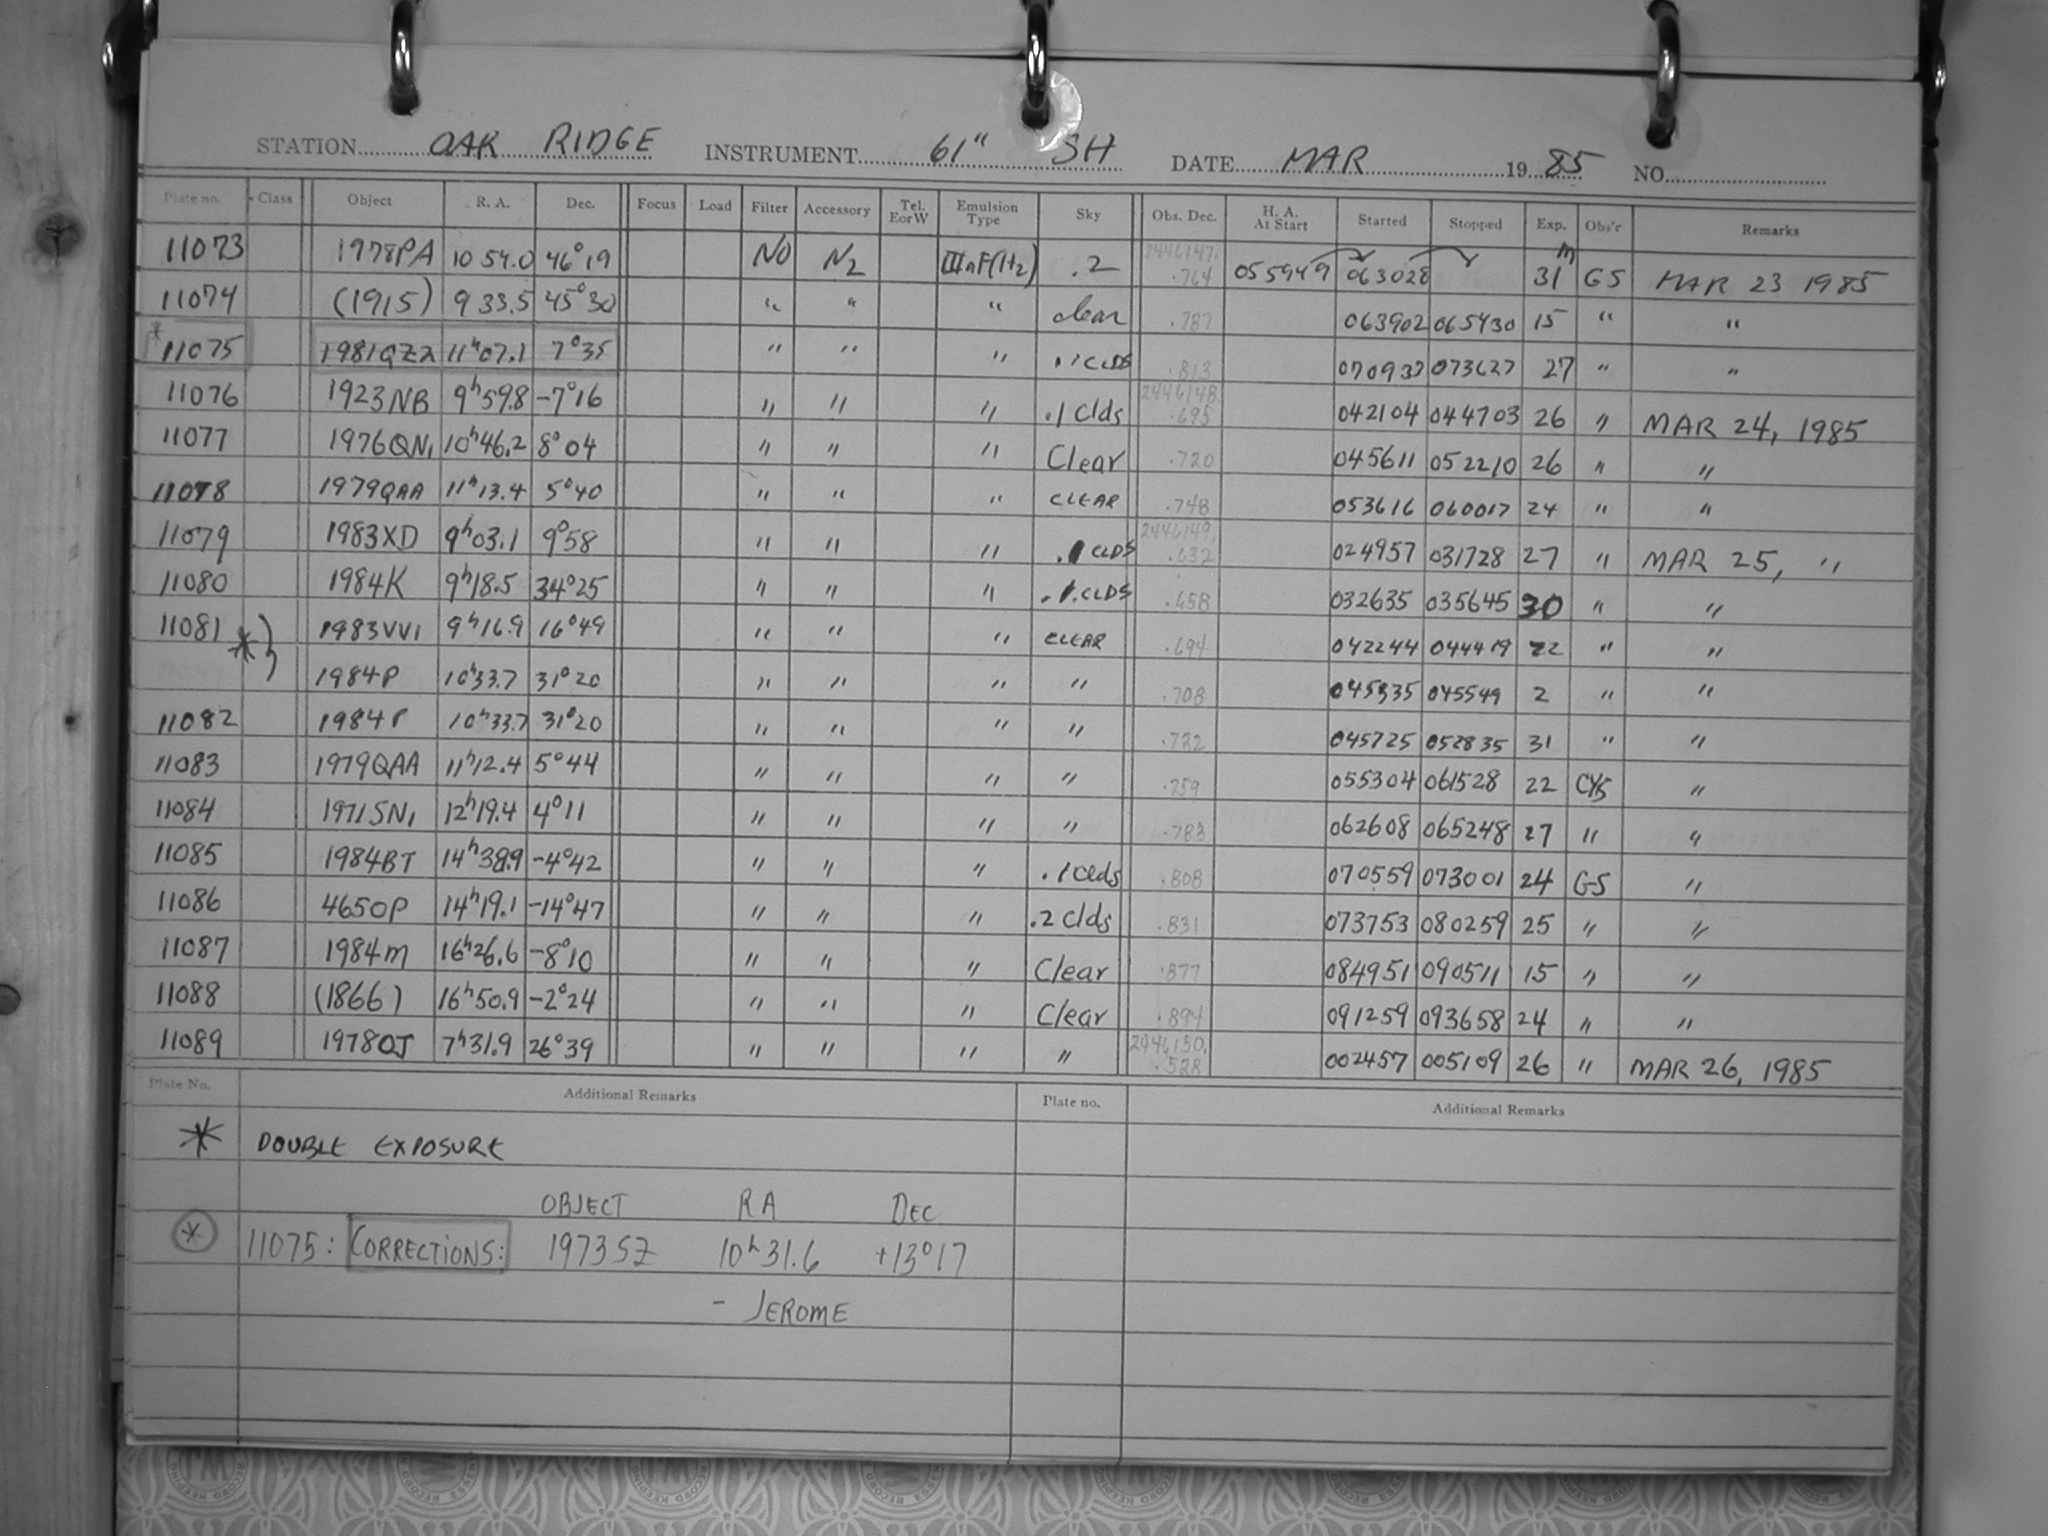 STATION OAK RIDGE INSTRUMENT 61" SH DATE MAR 19 85 NO.
Plate no. Class Object R. A. Dec. Focus Load Filter Accessory Tel. EorW Emulsion Type Sky Obs. Dec. H. A. At Start Started Stopped Exp. Obs'r Remarks
11073 1978PA 10 54.0 46°19 NO N2 IIIaF(H2) .2 2446147. .764 055949 063028 31 m GS MAR 23 1985
11074 (1915) 9 33.5 45°30 " " " clear .787 063902 065430 15 " "
* 11075 1981QZ2 11h07.1 7°35 " " " .1 CLDS .813 070937 073627 27 " "
11076 1923NB 9h59.8 -7°16 " " " .1 Clds 2446148. .695 042104 044703 26 " MAR 24, 1985
11077 1976QN1 10h46.2 8°04 " " " Clear .720 045611 052210 26 " "
11078 1979QAA 11h13.4 5°40 " " " CLEAR .748 053616 060017 24 " "
11079 1983XD 9h03.1 9°58 " " " .1 CLDS 2446149. .632 024957 031728 27 " MAR 25, "
11080 1984K 9h18.5 34°25 " " " .1 CLDS .658 032635 035645 30 " "
11081 *) 1983VV1 9h16.9 16°49 " " " CLEAR .694 042244 044419 22 " "
1984P 10h33.7 31°20 " " " " .708 045335 045549 2 " "
11082 1984P 10h33.7 31°20 " " " " .722 045725 052835 31 " "
11083 1979QAA 11h12.4 5°44 " " " " .759 055304 061528 22 CYS "
11084 1971SN1 12h19.4 4°11 " " " " .783 062608 065248 27 " "
11085 1984BT 14h38.9 -4°42 " " " .1 Clds .808 070559 073001 24 GS "
11086 4650P 14h19.1 -14°47 " " " .2 Clds .831 073753 080259 25 " "
11087 1984M 16h26.6 -8°10 " " " Clear .877 084951 090511 15 " "
11088 (1866) 16h50.9 -2°24 " " " Clear .894 091259 093658 24 " "
11089 1978OJ 7h31.9 26°39 " " " " 2446150. .528 002457 005109 26 " MAR 26, 1985
Plate No. Additional Remarks Plate no. Additional Remarks
* DOUBLE EXPOSURE
OBJECT RA DEC
* 11075: CORRECTIONS: 1973SZ 10h31.6 +13°17
- JEROME